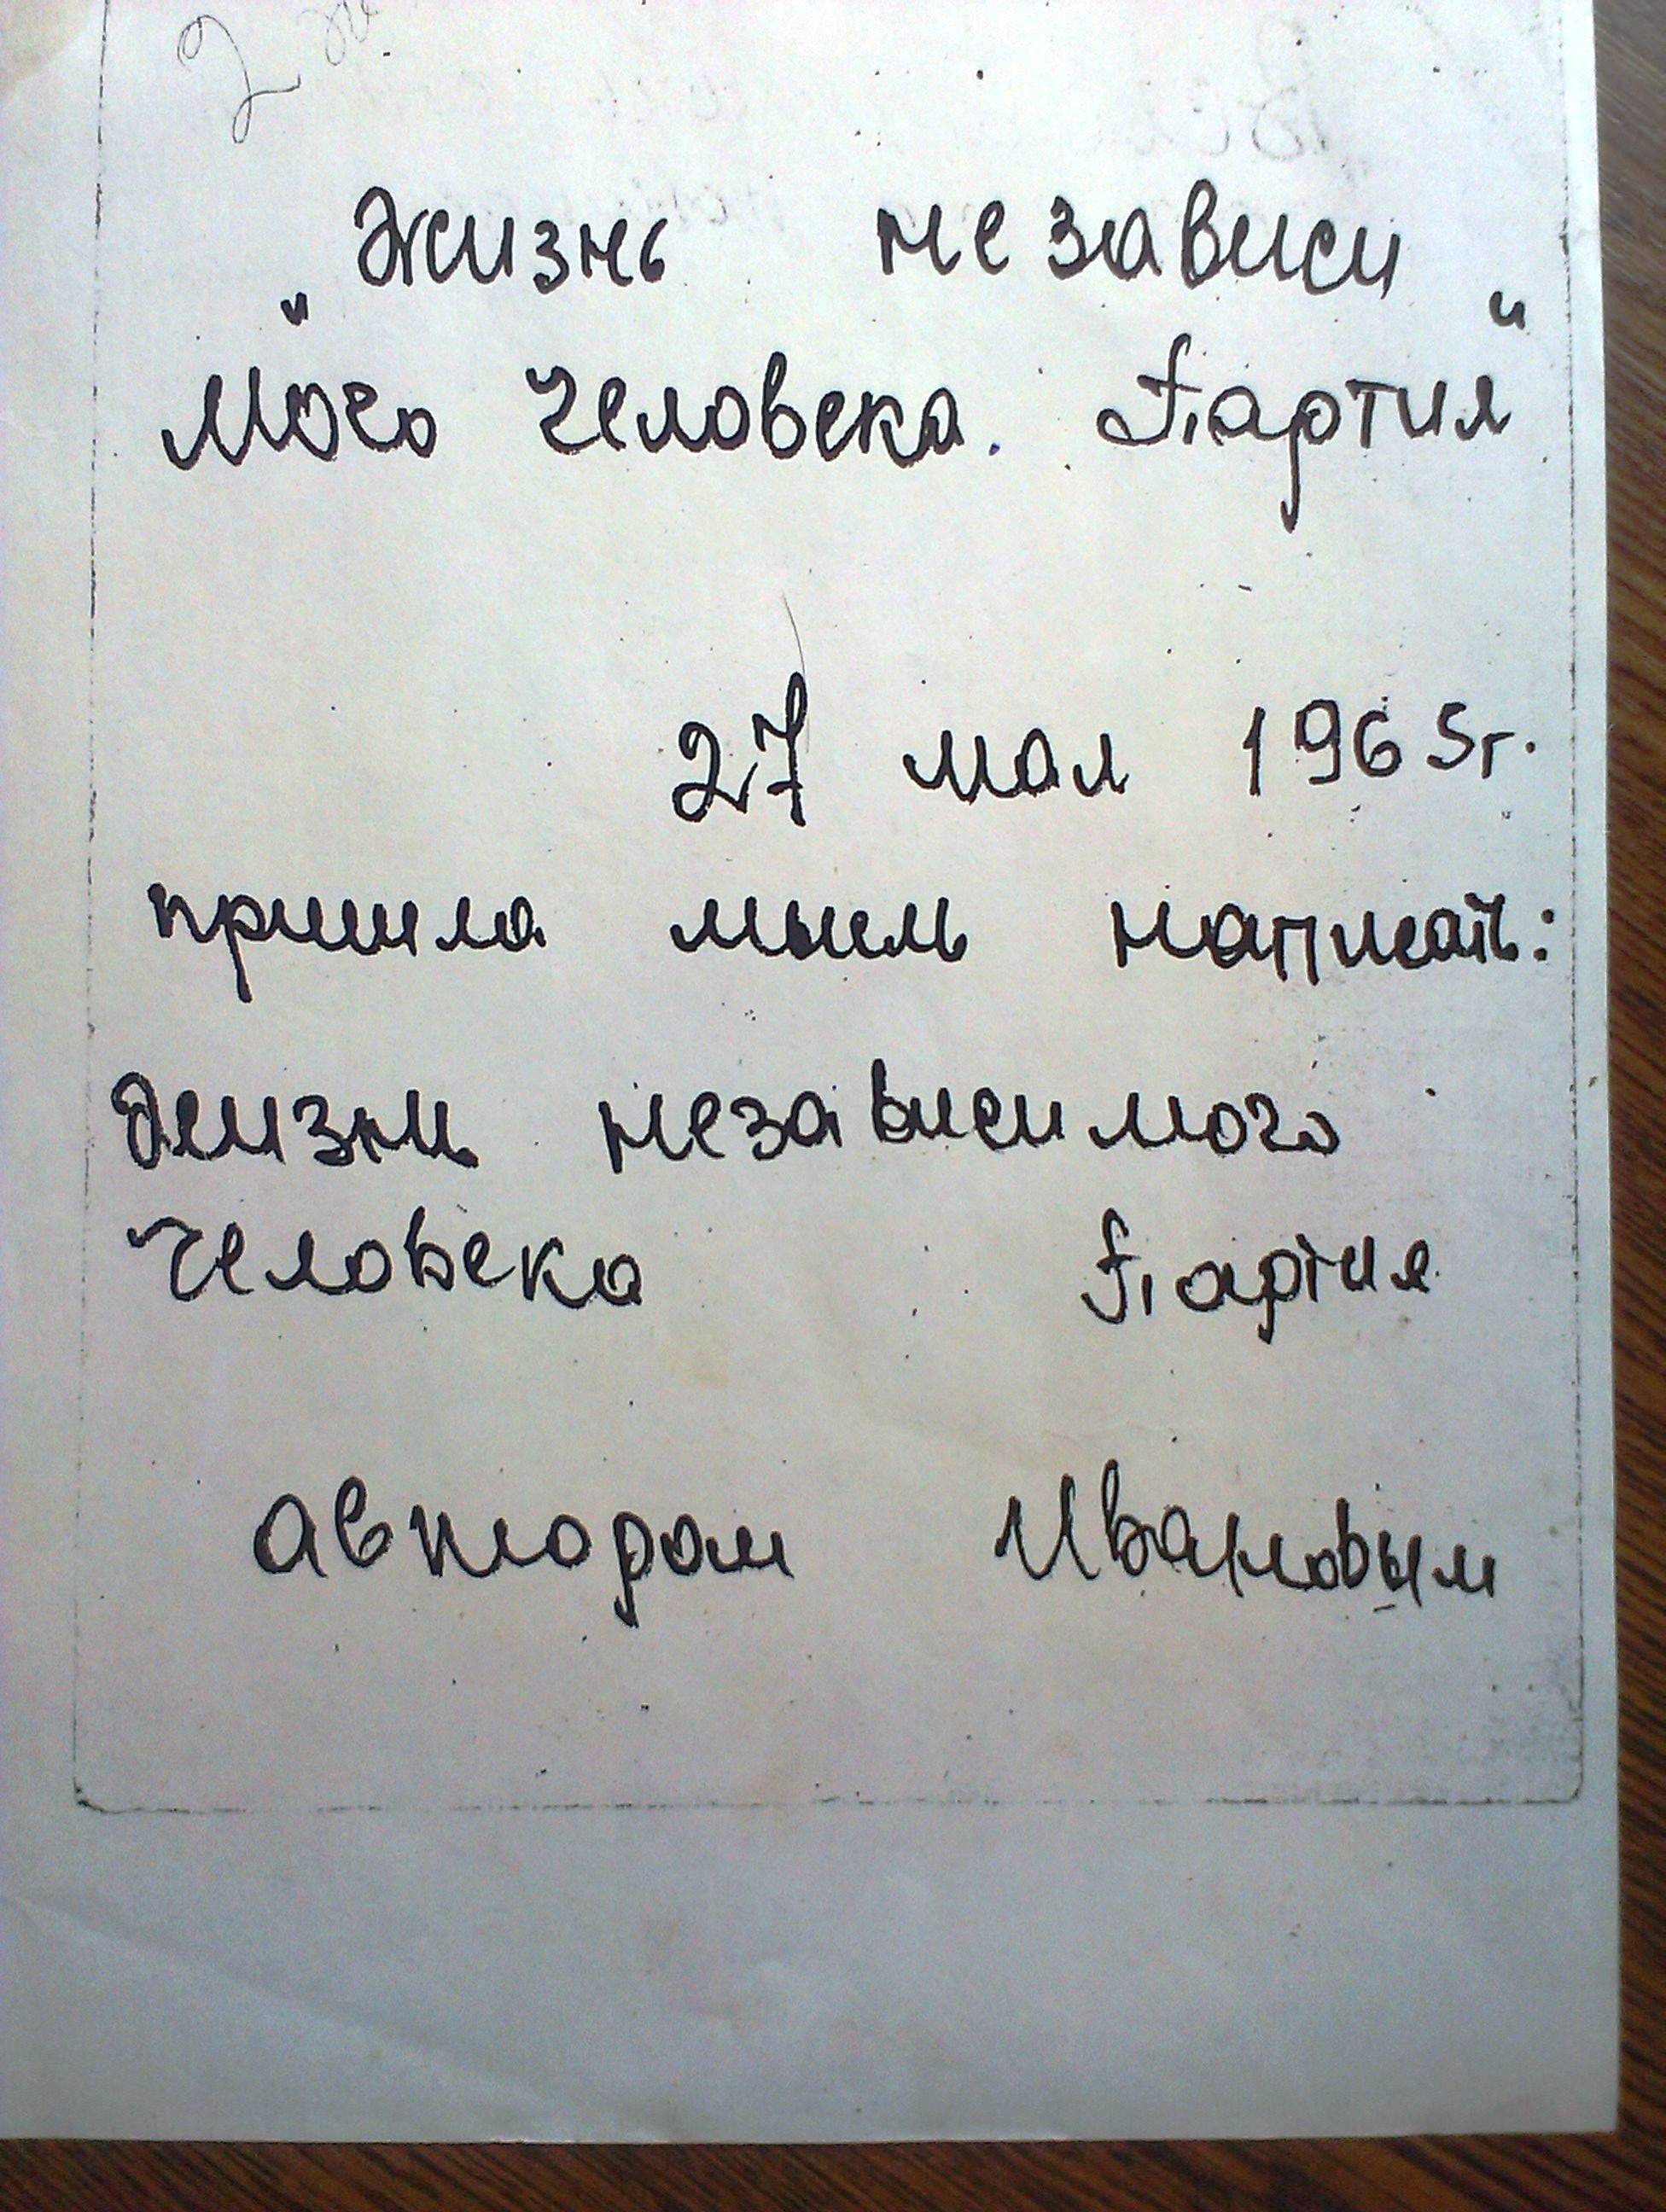 2
Жизнь независи
"мого Человека. Партия"
27 мая 1965г.
пришла мысль написать:
Жизнь независимого
Человека Партия
автором Ивановым